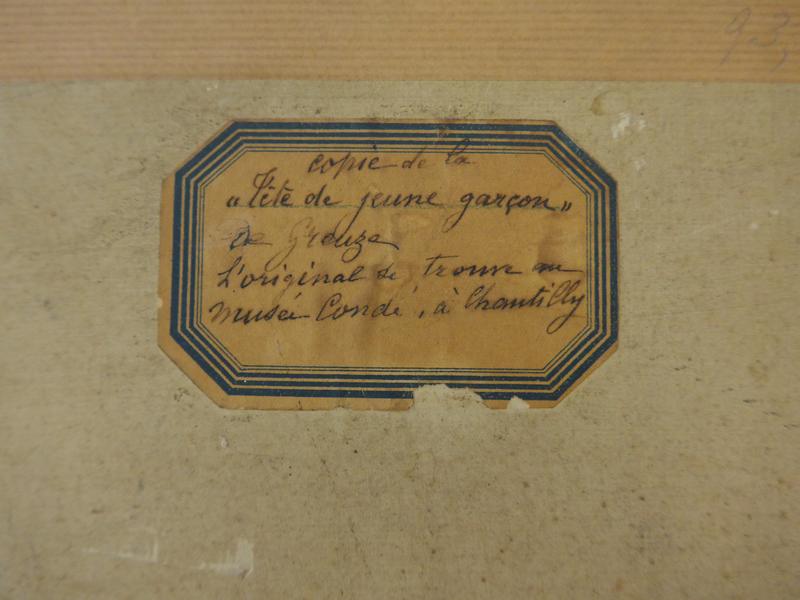 93,
copie de la
"Tête de jeune garçon"
de Greuze
L'original se trouve au
musée Condé, à Chantilly